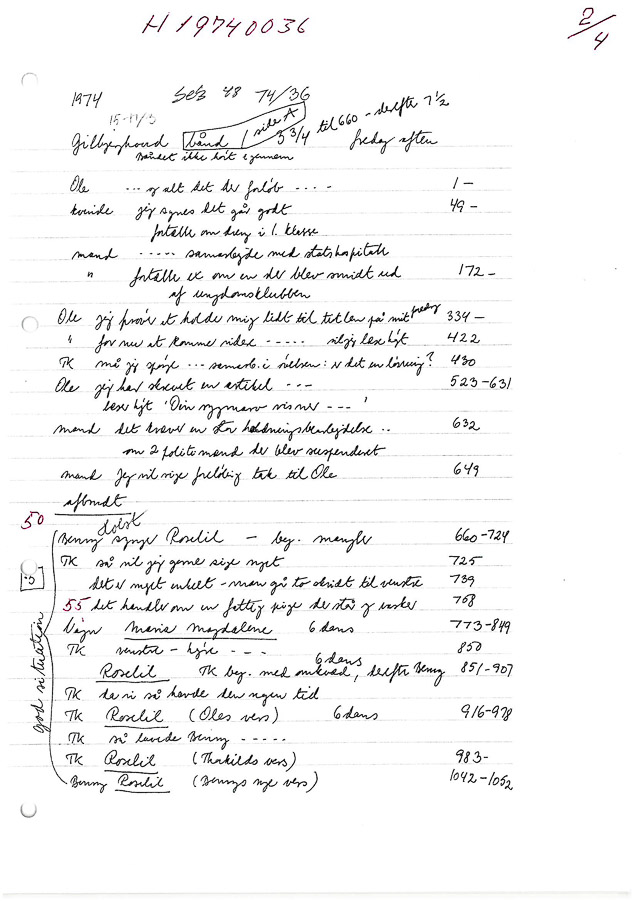 H 19740036
2/4
1974 74/36
15-17/3
Gilbjerghoved bånd / side A 3 3/4 til 660 - derefter 7 1/2
fredag aften
Båndet ikke hørt igennem
Ole --- og alt det der forløb ---- 1 -
kvinde jeg synes det går godt 49 -
fortælle om dreng i 1. klasse
mand ----- samarbejde med statshospitale
" fortælle ex om en der blev smidt ud 172 -
af ungdomsklubben
Ole jeg prøver at holde mig lidt til titlen på mit foredrag 334 -
" for nu at komme videre ----- vil jeg læse højt 422
TK må jeg spørge --- samarb. i : er det en løsning? 430
Ole jeg har skrevet en artikel --- 523-631
læser højt 'Din sygmano visner ---'
mand det kræver en stor holdningsbearbejdelse .. 632
om 2 politimænd der blev suspenderet
mand Jeg vil sige foreløbig tak til Ole 649
afbrudt
50
Benny Holst synger Roselil - beg. mangler 660-724
TK så vil jeg gerne sige noget 725
det er meget enkelt - man gå to skridt til venstre 739
55 det handler om en fattig pige der stå og vasker 768
Vagn Maria Magdalene 6 dans 773-849
TK venstre - højre --- 850
6 dans
Roselil TK beg. med omkvæd, derefter Benny 851-907
TK da vi så havde den nogen tid
TK Roselil (Oles vers) 6 dans 916-978
TK så lavede Benny -----
TK Roselil (Thorkilds vers) 983-
Benny Roselil (Bennys nye vers) 1042-1052
god situation